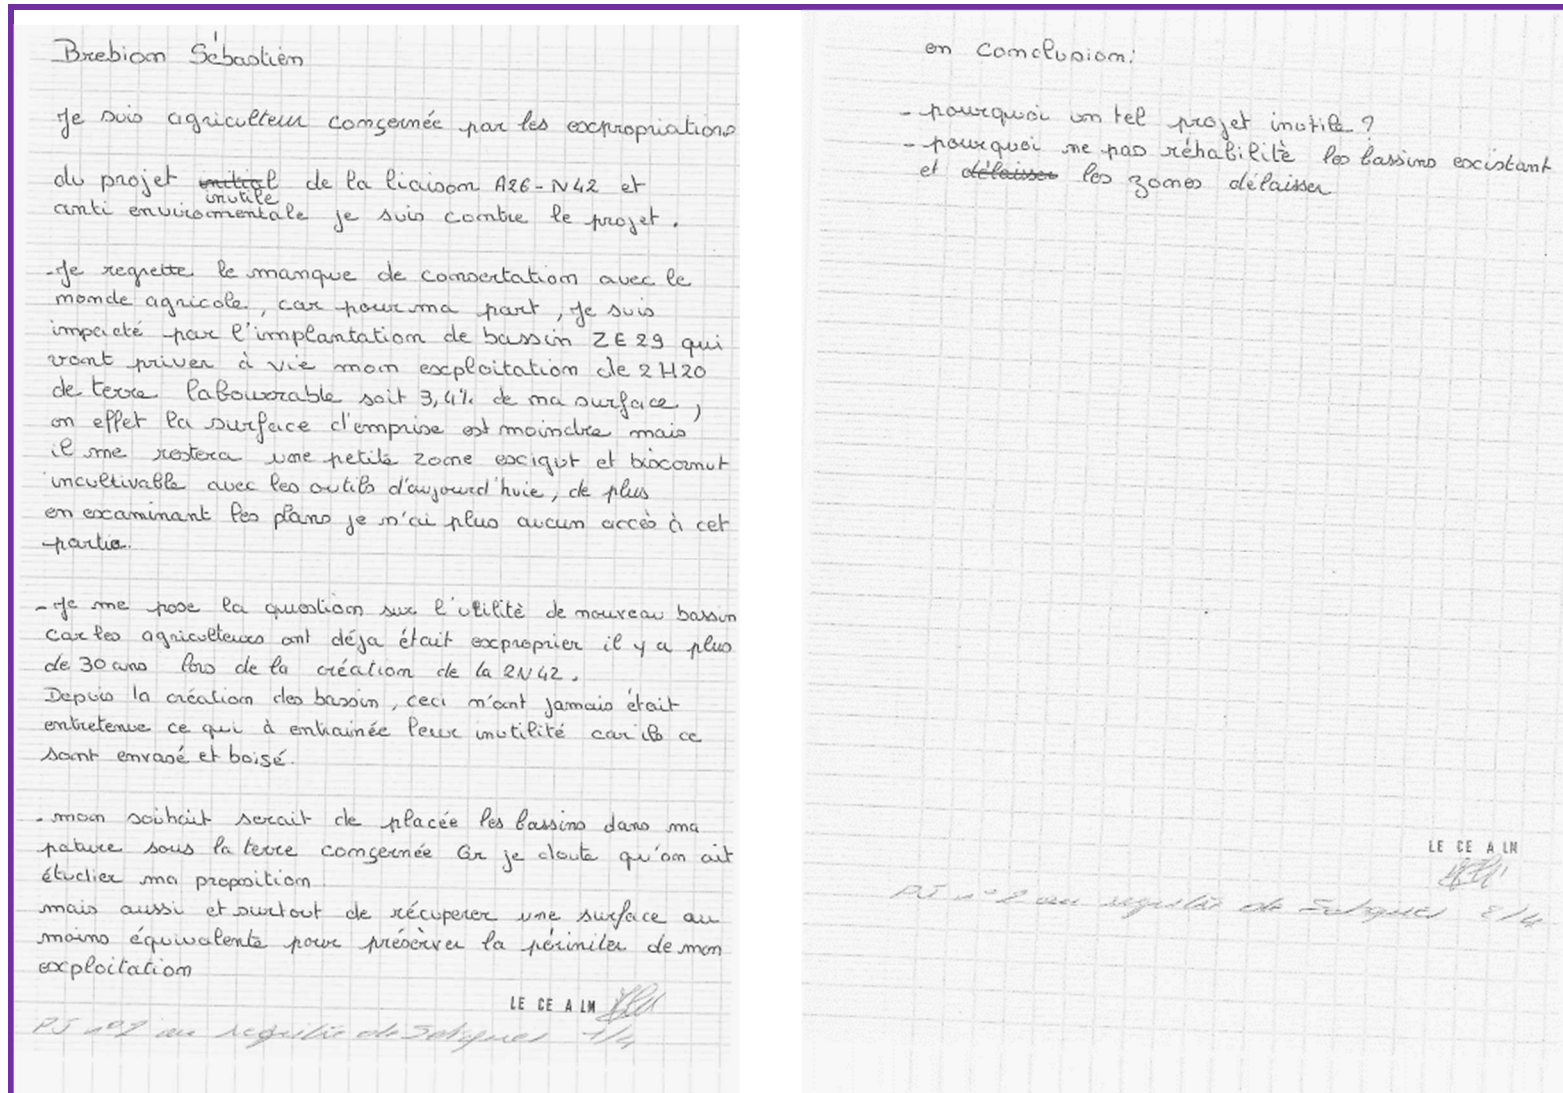 Brebion Sébastien
Je suis agriculteur conçernée par les expropriations
du projet initial de la liaison A26-N42 et
inutile
anti enviromentale je suis contre le projet.
-Je regrette le manque de consertation avec le
monde agricole, car pour ma part, Je suis
impacté par l'implantation de bassin ZE29 qui
vont priver à vie mon exploitation de 2H20
de terre labourrable soit 3,4% de ma surface,
en effet la surface d'emprise est moindre mais
il me restera une petite zone exigut et biscornut
incultivable avec les outils d'aujourd'huie, de plus
en examinant les plans je n'ai plus aucun accès à cet
partie.
-Je me pose la question sur l'utilitè de nouveau bassin
car les agriculteurs ont déja était exproprier il y a plus
de 30 ans lors de la création de la RN42.
Depuis la création des bassin, ceci n'ont jamais était
entretenue ce qui à entrainée leur inutilité car ils ce
sont envasé et boisé.
- mon souhait serait de placée les bassins dans ma
pature sous la terre conçernée Or je doute qu'on ait
étudier ma proposition
mais aussi et surtout de récuperer une surface au
moins équivalente pour présèrver la périniter de mon
exploitation
LE CE A LM
PJ n°2 au registre de Setques 1/4
en conclusion:
- pourquoi un tel projet inutile?
- pourquoi ne pas réhabilitè les bassins existant
et délaisser les zones délaisser
LE CE A LM
PJ n°2 au registre de Setques 2/4